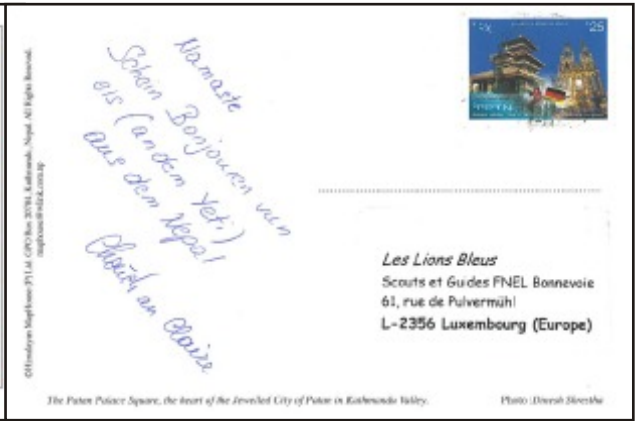 ©Himalayan MapHouse (P) Ltd. GPO Box 20784, Kathmandu, Nepal. All Rights Reserved.
maphouse@wlink.com.np
Namaste
Schéin Bonjouren vun
eis (an dem Yeti)
aus dem Nepal
an Claire
25
Les Lions Bleus
Scouts et Guides FNEL Bonnevoie
61, rue de Pulvermühl
L-2356 Luxembourg (Europe)
The Patan Palace Square, the heart of the Jewelled City of Patan in Kathmandu Valley.
Photo :Dinesh Shrestha